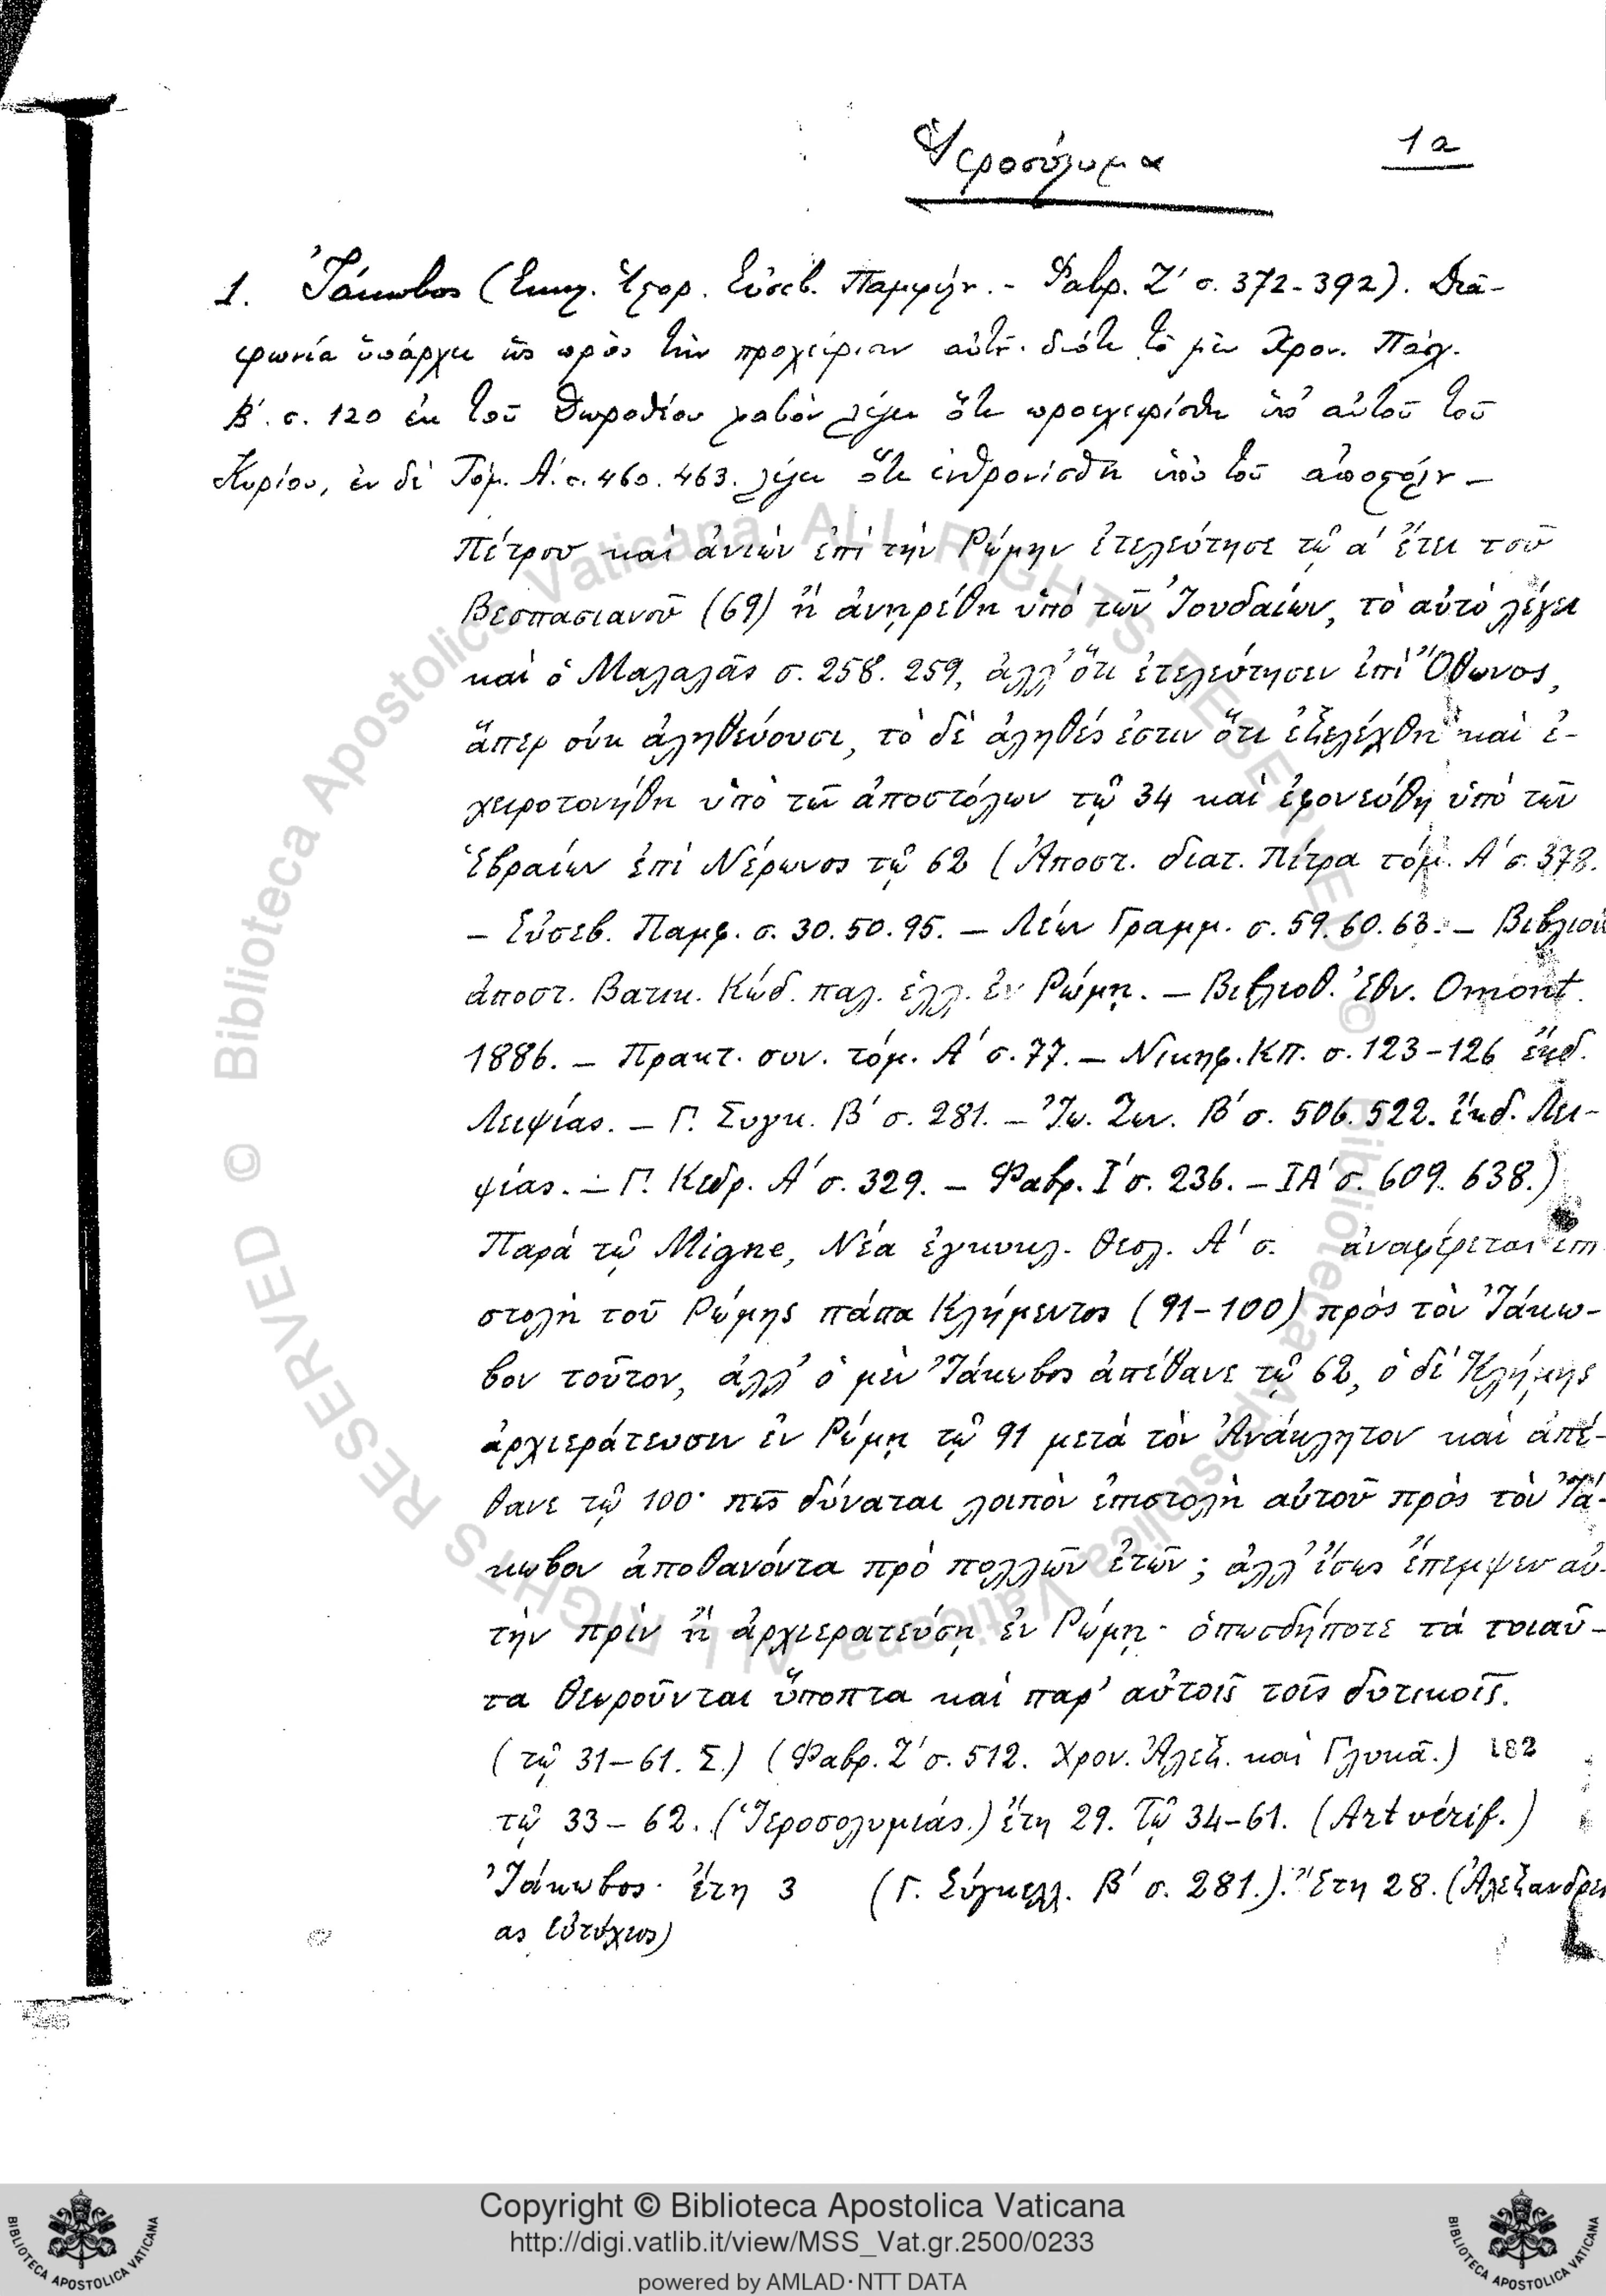 Ἱεροσόλυμα
1α
1. Ἰάκωβος (Ἐκκλ. Ἱστορ. Εὐσεβ. Παμφίλ. - Φαβρ. Ζ΄ σ. 372-392). Δια-
φωνία ὑπάρχει ὡς πρὸς τὴν προχείρισιν αὐτοῦ. διότι τὸ μὲν Χρον. Πασχ.
Β΄. σ. 120 ἐκ τοῦ Δωροθέου λαβὸν λέγει ὅτι προεχειρίσθη ὑπ' αὐτοῦ τοῦ
Κυρίου, ἐν δὲ Τόμ. Α΄. σ. 460. 463. λέγει ὅτι ἐνθρονίσθη ὑπὸ τοῦ ἀποστόλ-
Πέτρου καὶ ἀνιὼν ἐπὶ τὴν Ρώμην ἐτελεύτησε τῷ α΄ ἔτει τοῦ
Βεσπασιανοῦ (69) ἢ ἀνῃρέθη ὑπὸ τῶν Ἰουδαίων, τὸ αὐτὸ λέγει
καὶ ὁ Μαλαλᾶς σ. 258. 259, ἀλλ' ὅτι ἐτελεύτησεν ἐπὶ Ὄθωνος,
ἅπερ οὐκ ἀληθεύουσι, τὸ δὲ ἀληθές ἐστιν ὅτι ἐξελέχθη καὶ ἐ-
χειροτονήθη ὑπὸ τῶν ἀποστόλων τῷ 34 καὶ ἐφονεύθη ὑπὸ τῶν
Ἑβραίων ἐπὶ Νέρωνος τῷ 62 (Ἀποστ. διατ. Πίτρα τόμ. Α΄ σ. 378.
– Εὐσεβ. Παμφ. σ. 30. 50. 95. – Λέων Γραμμ. σ. 59. 60. 63. – Βιβλιοθ
ἀποστ. Βατικ. Κώδ. παλ. ἑλλ. ἐν Ρώμῃ. – Βιβλιοθ. Ἐθν. Omont.
1886. – Πρακτ. συν. τόμ. Α΄ σ. 77. – Νικηφ. ΚΠ. σ. 123-126 ἔκδ.
Λειψίας. – Γ. Συγκ. Β΄ σ. 281. – Ἰω. Ζων. Β΄ σ. 506. 522. ἔκδ. Λει-
ψίας. – Γ. Κεδρ. Α΄ σ. 329. – Φαβρ. Ι΄ σ. 236. – ΙΑ΄ σ. 609. 638.)
Παρὰ τῷ Migne, Νέα ἐγκυκλ. θεολ. Α΄ σ. ἀναφέρεται ἐπι
στολὴ τοῦ Ρώμης πάπα Κλήμεντος (91-100) πρὸς τὸν Ἰάκω-
βον τοῦτον, ἀλλ' ὁ μὲν Ἰάκωβος ἀπέθανε τῷ 62, ὁ δὲ Κλήμης
ἀρχιεράτευσεν ἐν Ρώμῃ τῷ 91 μετὰ τὸν Ἀνάκλητον καὶ ἀπέ-
θανε τῷ 100· πῶς δύναται λοιπὸν ἐπιστολὴ αὐτοῦ πρὸς τὸν Ἰά-
κωβον ἀποθανόντα πρὸ πολλῶν ἐτῶν; ἀλλ' ἴσως ἔπεμψεν αὐ-
τὴν πρὶν ἢ ἀρχιερατεύσῃ ἐν Ρώμῃ· ὁπωσδήποτε τὰ τοιαῦ-
τα θεωροῦνται ὕποπτα καὶ παρ' αὐτοῖς τοῖς δυτικοῖς.
(τῷ 31-61. Σ.) (Φαβρ. Ζ΄ σ. 512. Χρον. Ἀλεξ. καὶ Γλυκᾶ.) 182
τῷ 33-62. (Ἱεροσολυμιάς.) ἔτη 29. Τῷ 34-61. (Art vérif.)
Ἰάκωβος· ἔτη 3 (Γ. Σύγκελλ. Β΄ σ. 281.). Ἔτη 28. (Ἀλεξανδρεί
ας Εὐτύχιος)
© Biblioteca Apostolica Vaticana ALL RIGHTS RESERVED © Biblioteca Apostolica Vaticana ALL RIGHTS RESERVED
BIBLIOTECA APOSTOLICA VATICANA
Copyright © Biblioteca Apostolica Vaticana
http://digi.vatlib.it/view/MSS_Vat.gr.2500/0233
powered by AMLAD·NTT DATA
BIBLIOTECA APOSTOLICA VATICANA